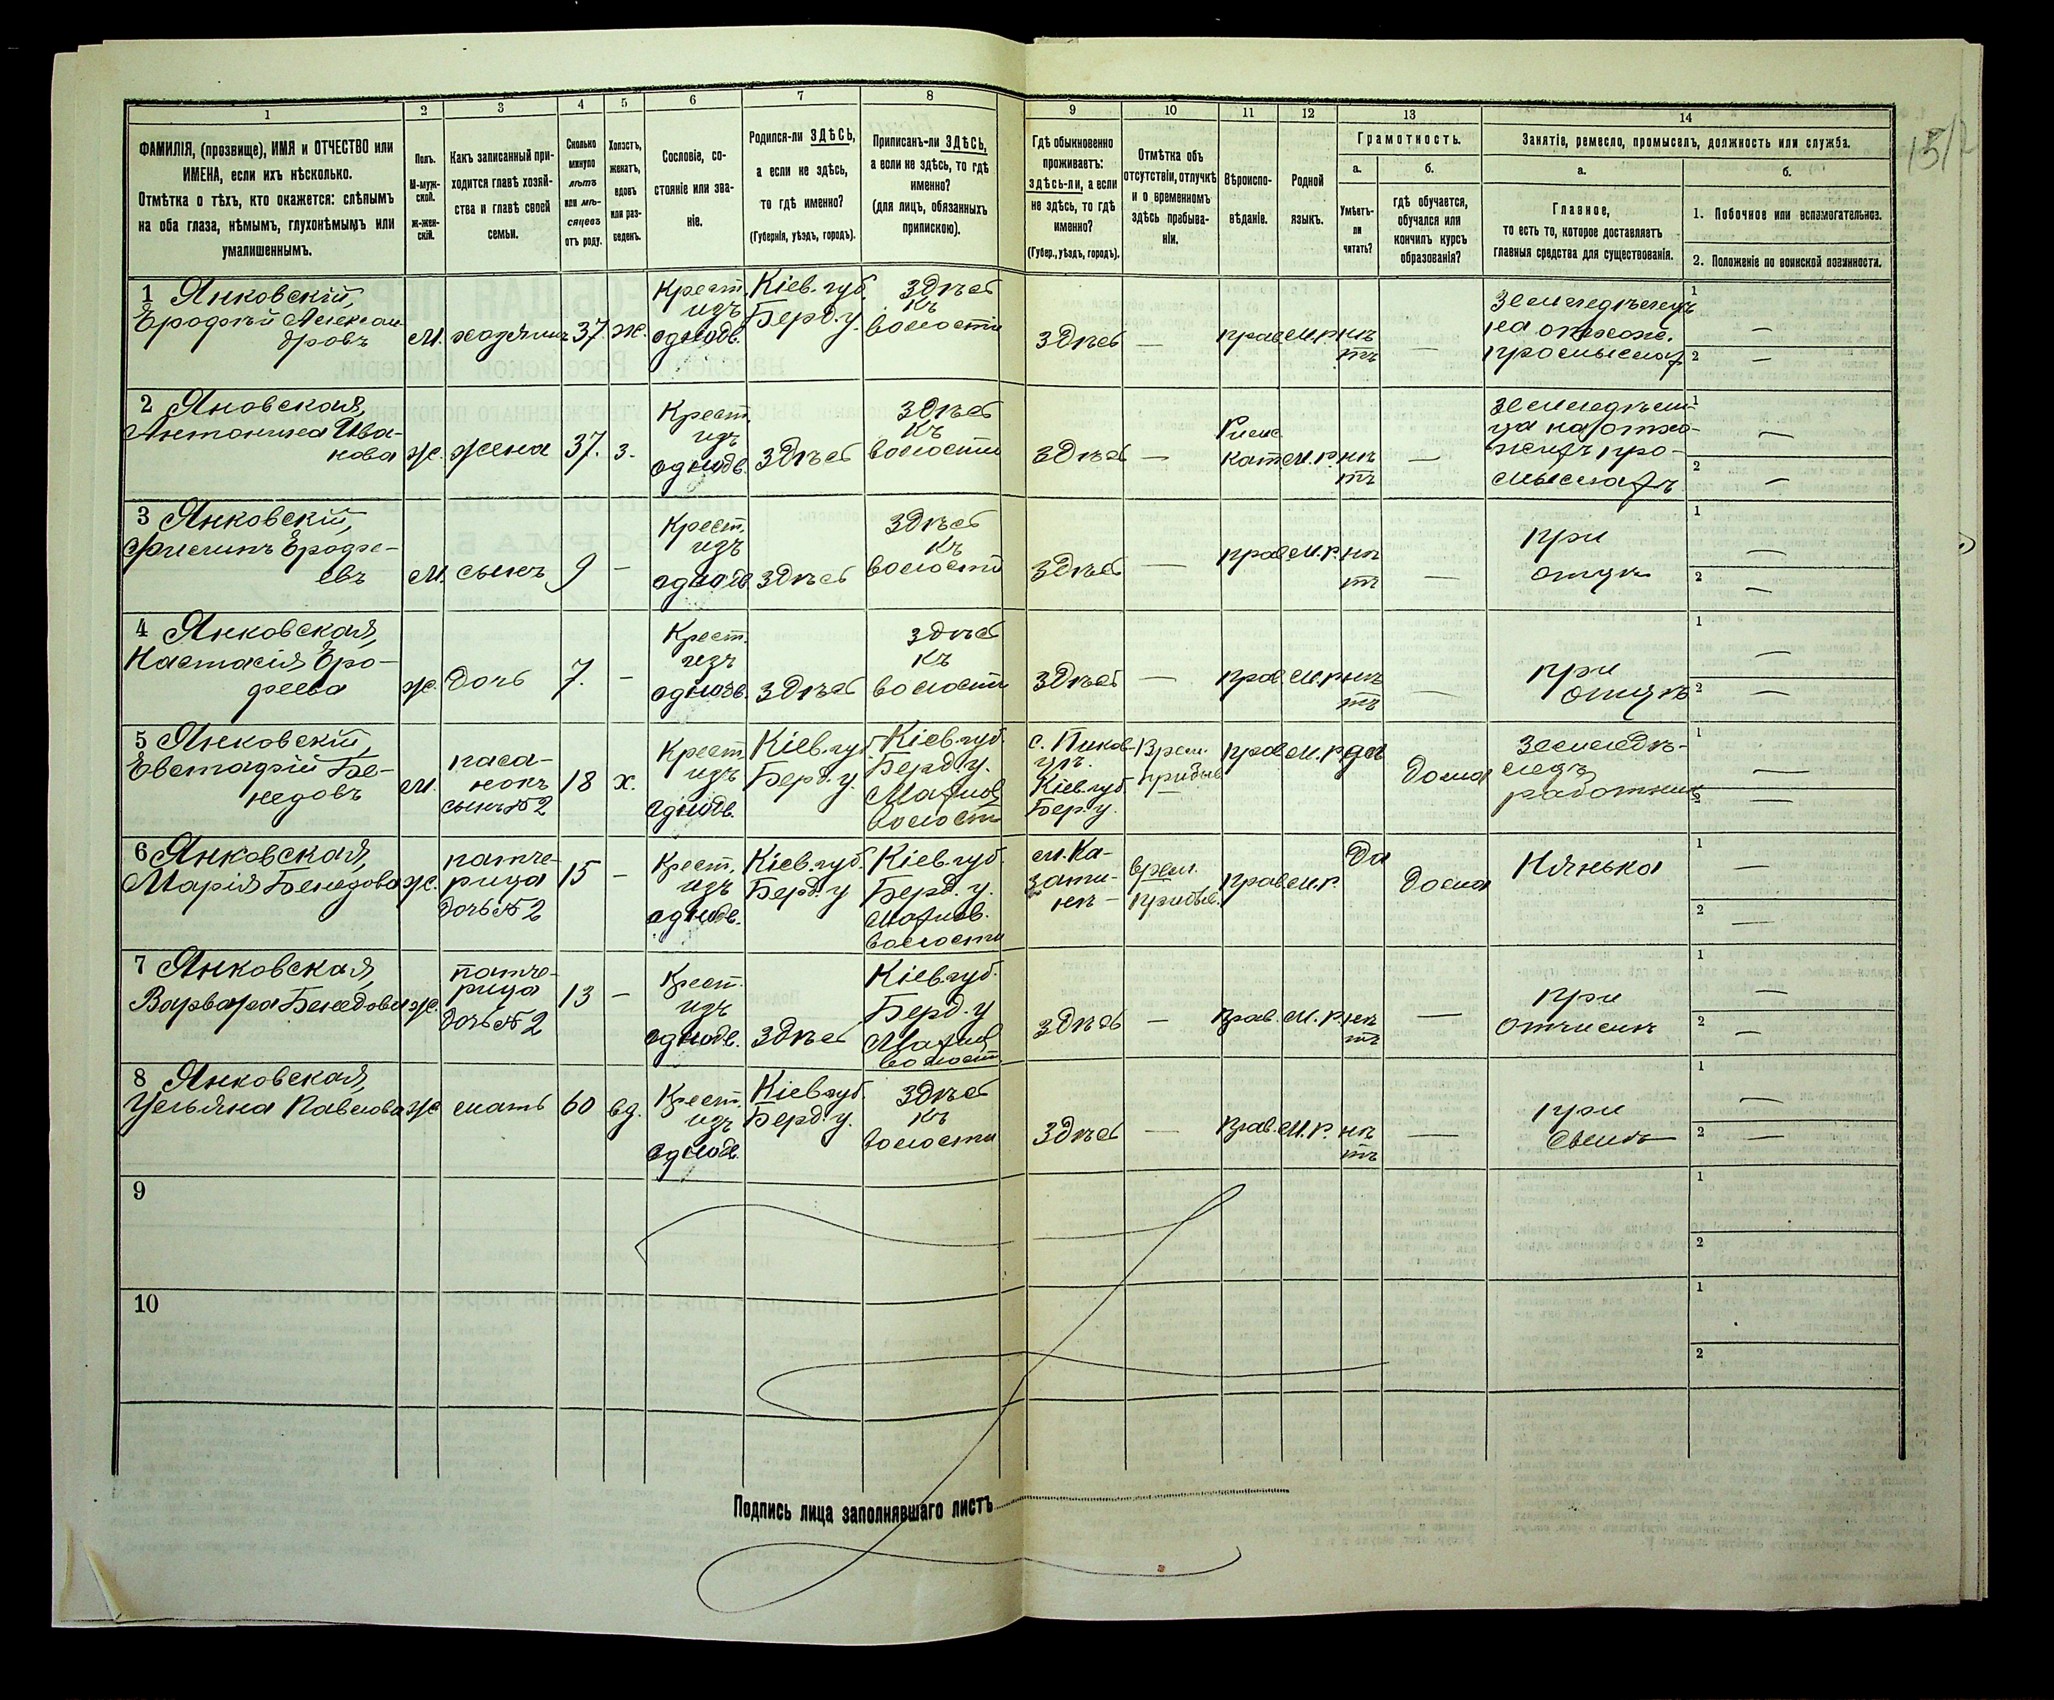 1
2
3
4
5
6
7
8
ФАМИЛІЯ, (прозвище), ИМЯ и ОТЧЕСТВО или
ИМЕНА, если ихъ нѣсколько.
Отмѣтка о тѣхъ, кто окажется: слѣпымъ
на оба глаза, нѣмымъ, глухонѣмымъ или
умалишеннымъ.
Полъ.
М-муж-
ской.
ж-жен-
скій.
Какъ записанный при-
ходится главѣ хозяй-
ства и главѣ своей
семьи.
Сколько
минуло
лѣтъ
или мѣ-
сяцевъ
отъ роду.
Холостъ,
женатъ,
вдовъ
или раз-
веденъ.
Сословіе, со-
стояніе или зва-
ніе.
Родился-ли ЗДѢСЬ,
а если не здѣсь,
то гдѣ именно?
(Губернія, уѣздъ, городъ).
Приписанъ-ли ЗДѢСЬ,
а если не здѣсь, то гдѣ
именно?
(для лицъ, обязанныхъ
припискою).
9
10
11
12
13
14
Гдѣ обыкновенно
проживаетъ:
здѣсь-ли, а если
не здѣсь, то гдѣ
именно?
(Губер., уѣздъ, городъ).
Отмѣтка объ
отсутствіи, отлучкѣ
и о временномъ
здѣсь пребыва-
ніи.
Вѣроиспо-
вѣданіе.
Родной
языкъ.
Грамотность.
а.
Умѣетъ-
ли
читать?
б.
гдѣ обучается,
обучался или
кончилъ курсъ
образованія?
Занятіе, ремесло, промыселъ, должность или служба.
а.
Главное,
то есть то, которое доставляетъ
главныя средства для существованія.
б.
1. Побочное или вспомогательное.
2. Положеніе по воинской повинности.
1 Янковскій,
Ерофѣй Алексан-
дровъ
м.
хозяинъ
37.
ж.
Крест.
изъ
однодв.
Кіев. губ.
Берд. у.
здѣсь
къ
волости
здѣсь
—
прав.
м.р.
нѣ
тъ
—
земледѣлецъ
на отхож.
промыслах
1 —
2 —
2 Яновская,
Антонина Ива-
нова
ж.
жена
37.
з.
Крест.
изъ
однодв.
здѣсь
здѣсь
къ
волости
здѣсь
—
Римс.
кат.
м.р.
нѣ
тъ
—
земледѣли-
ца на отхо-
жихъ про-
мыслахъ
1 —
2 —
3 Янковскій,
Филипъ Ерофе-
евъ
м.
сынъ
9
—
Крест.
изъ
однодв.
здѣсь
здѣсь
къ
волости
здѣсь
—
прав.
м.р.
нѣ
тъ
—
при
отцѣ
1 —
2 —
4 Янковская,
Настасія Еро-
феева
ж.
дочь
7.
—
Крест.
изъ
однодв.
здѣсь
здѣсь
къ
волости
здѣсь
—
прав.
м.р.
нѣ
тъ
—
при
отцѣ
1 —
2 —
5 Янковскій,
Евстафій Бе-
недовъ
м.
паса-
нокъ
сынъ №2
18
х.
Крест.
изъ
однодв.
Кіев. губ.
Берд. у.
Кіев. губ.
Берд. у.
Махнов.
волости
Кіев. губ.
Бер. у.
Врем.
прибыв.
прав.
м.р.
да
дома
земледѣ-
лецъ
работник
1 —
2 —
6 Янковская,
Марія Бенедова
ж.
патче-
рица
дочь №2
15
—
Крест.
изъ
однодв.
Кіев. губ.
Берд. у
Кіев. губ.
Берд. у.
Махнов.
волости
м. Ка-
зати-
нѣ —
врем.
прибыв.
прав.
м.р.
да
дома
Нянька
1 —
2 —
7 Янковская,
Варвара Бенедова
ж.
патче-
рица
дочь №2
13
—
Крест.
изъ
однодв.
здѣсь
Кіев. губ.
Берд. у
Махнов
волост.
здѣсь
—
прав.
м.р.
нѣ
тъ
—
при
отчимѣ
1 —
2 —
8 Янковская,
Ульяна Павлова
ж.
мать
60
вд.
Крест.
изъ
однодв.
Кіев губ.
Берд. у.
здѣсь
къ
волости
здѣсь
—
прав.
м.р.
нѣ
тъ
—
при
сынѣ
1 —
2 —
9
1
2
10
1
2
Подпись лица заполнявшаго листъ